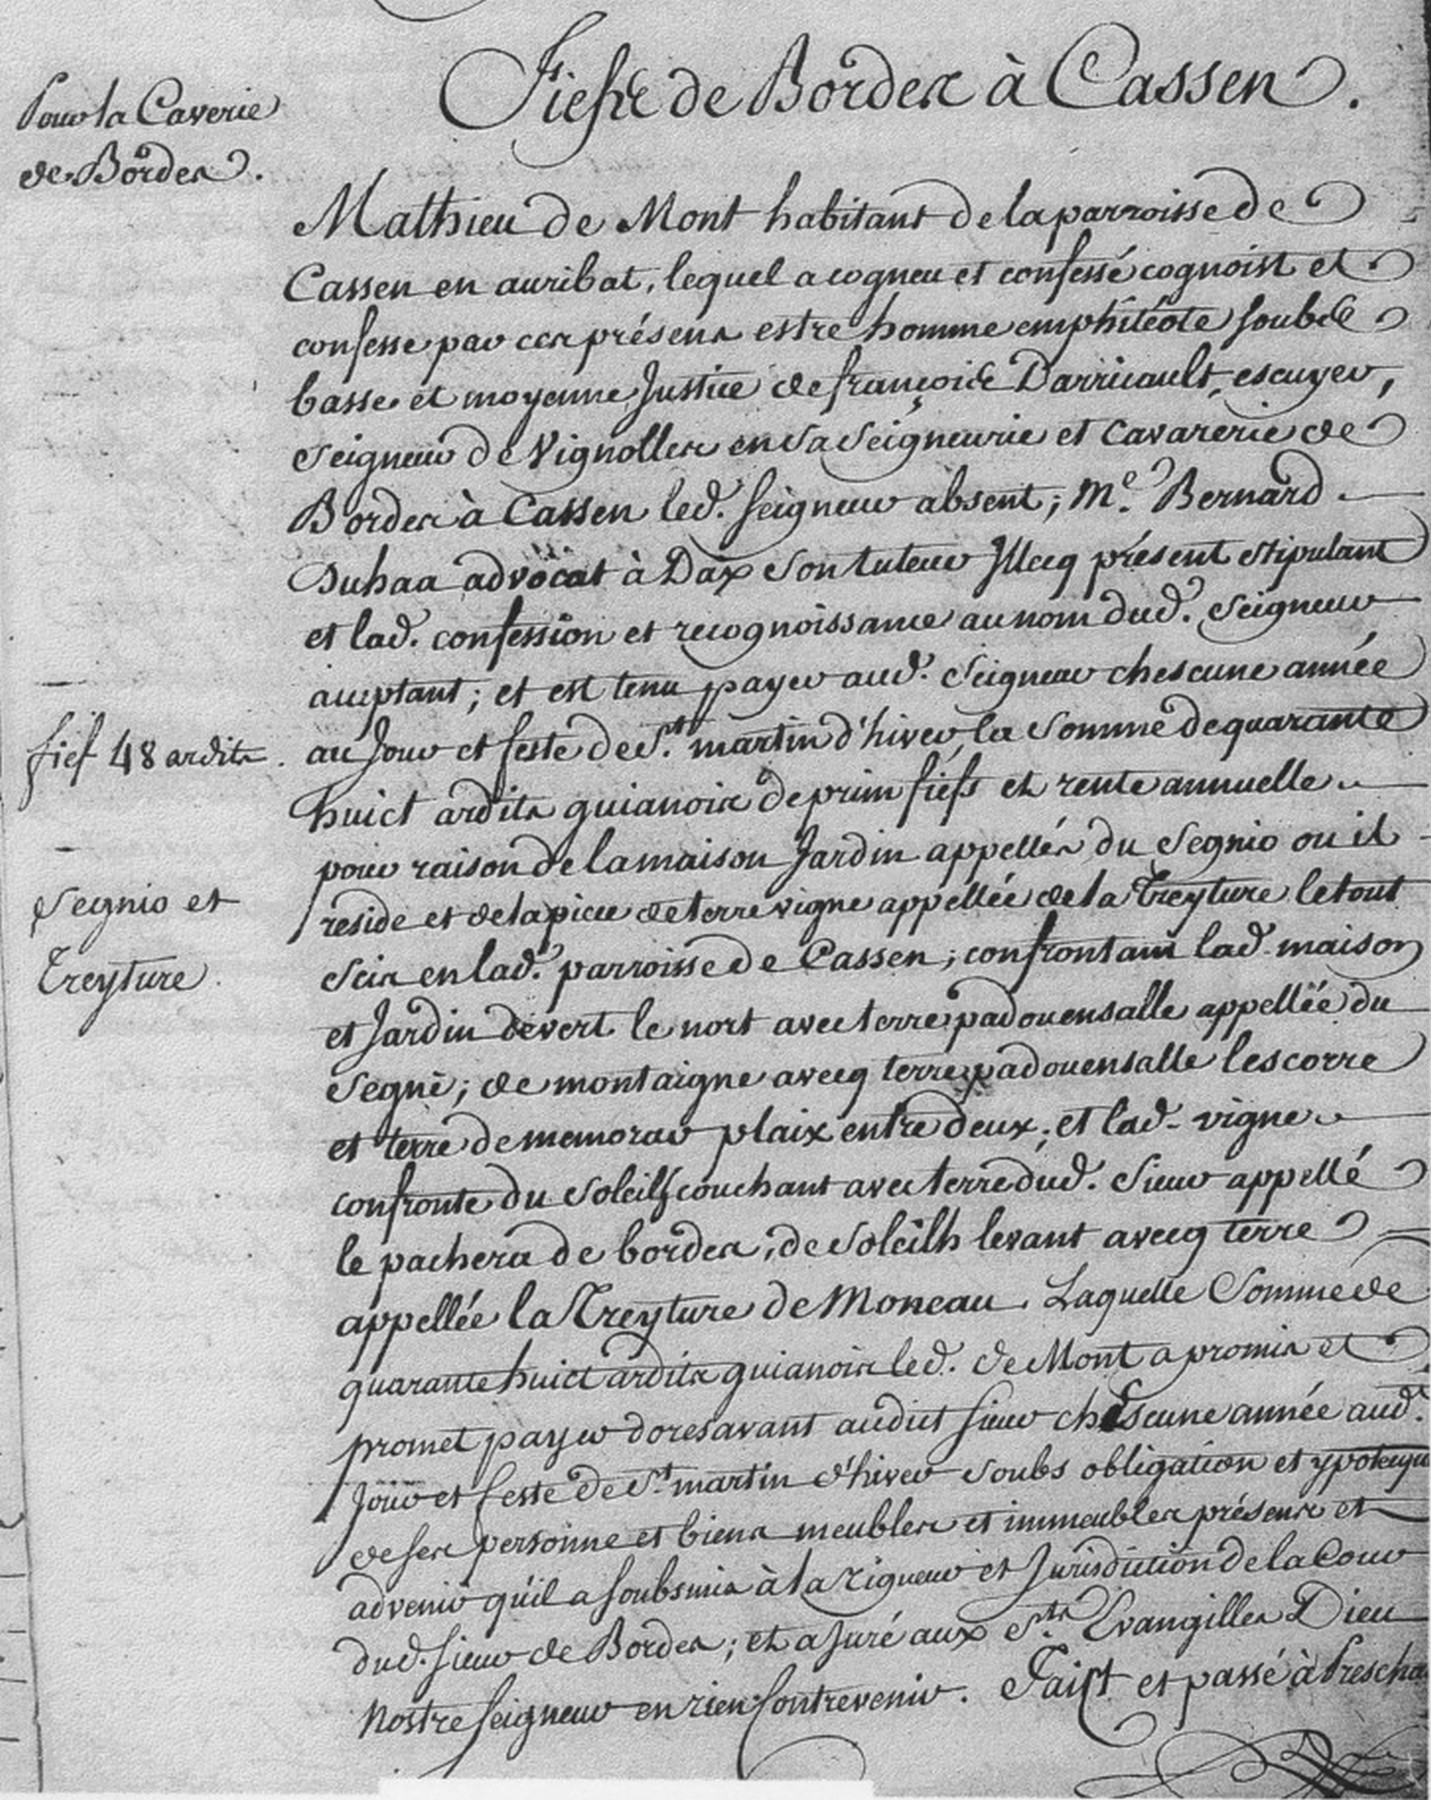 Fiefs de Bordes à Cassen.
Pour la Caverie
de Bordes.
Mathieu de Mont habitant de la parroisse de
Cassen en auribat, lequel a cogneu et confessé cognoist et
confesse par ces présens estre homme emphitéote soubs
basse et moyenne Justice de françois Darricault, escuyer,
Seigneur de Vignolles en sa Seigneurie et Cavarerie de
Bordes à Cassen led. seigneur absent; Me. Bernard
Duhaa advocat à Dax son tuteur Illecq présent stipulant
et lad. confession et recognoissance au nom dud. Seigneur
acceptant; et est tenu payer aud. Seigneur chescune année
au Jour et feste de St. martin d'hiver la Somme de quarante
fief 48 ardits.
huict ardits guianois de prim fiefs et rente annuelle
pour raison de la maison Jardin appellés du Segnio ou il
Segnio et
reside et de la piece de terre vigne appellée de la Treyture le tout
Treyture.
scis en lad. parroisse de Cassen; confrontant lad. maison
et Jardin devert le nort avec terre padouensalle appellée du
Segné; de montaigne avecq terre padouensalle lescorre
et terre de memorar plaix entre deux; et lad. vigne
confronte du Soleilh couchant avec terre dud. Sieur appellé
le pachera de bordes, de Soleilh levant avecq terre
appellée la Treyture de Moneau. Laquelle Somme de
quarante huict ardits guianois led. de Mont a promis et
promet payer doresavant audict sieur chescune année aud.
Jour et feste de St. martin d'hiver Soubs obligation et
de ses personne et biens meubles et immeubles présens et
advenir qu'il a soubsmis à la rigueur et Jurisdiction de la Cour
dud. sieur de Bordes; et a Juré aux Sts. Evangilles Dieu
Nostre seigneur en rien Contrevenir. Faict et passé à